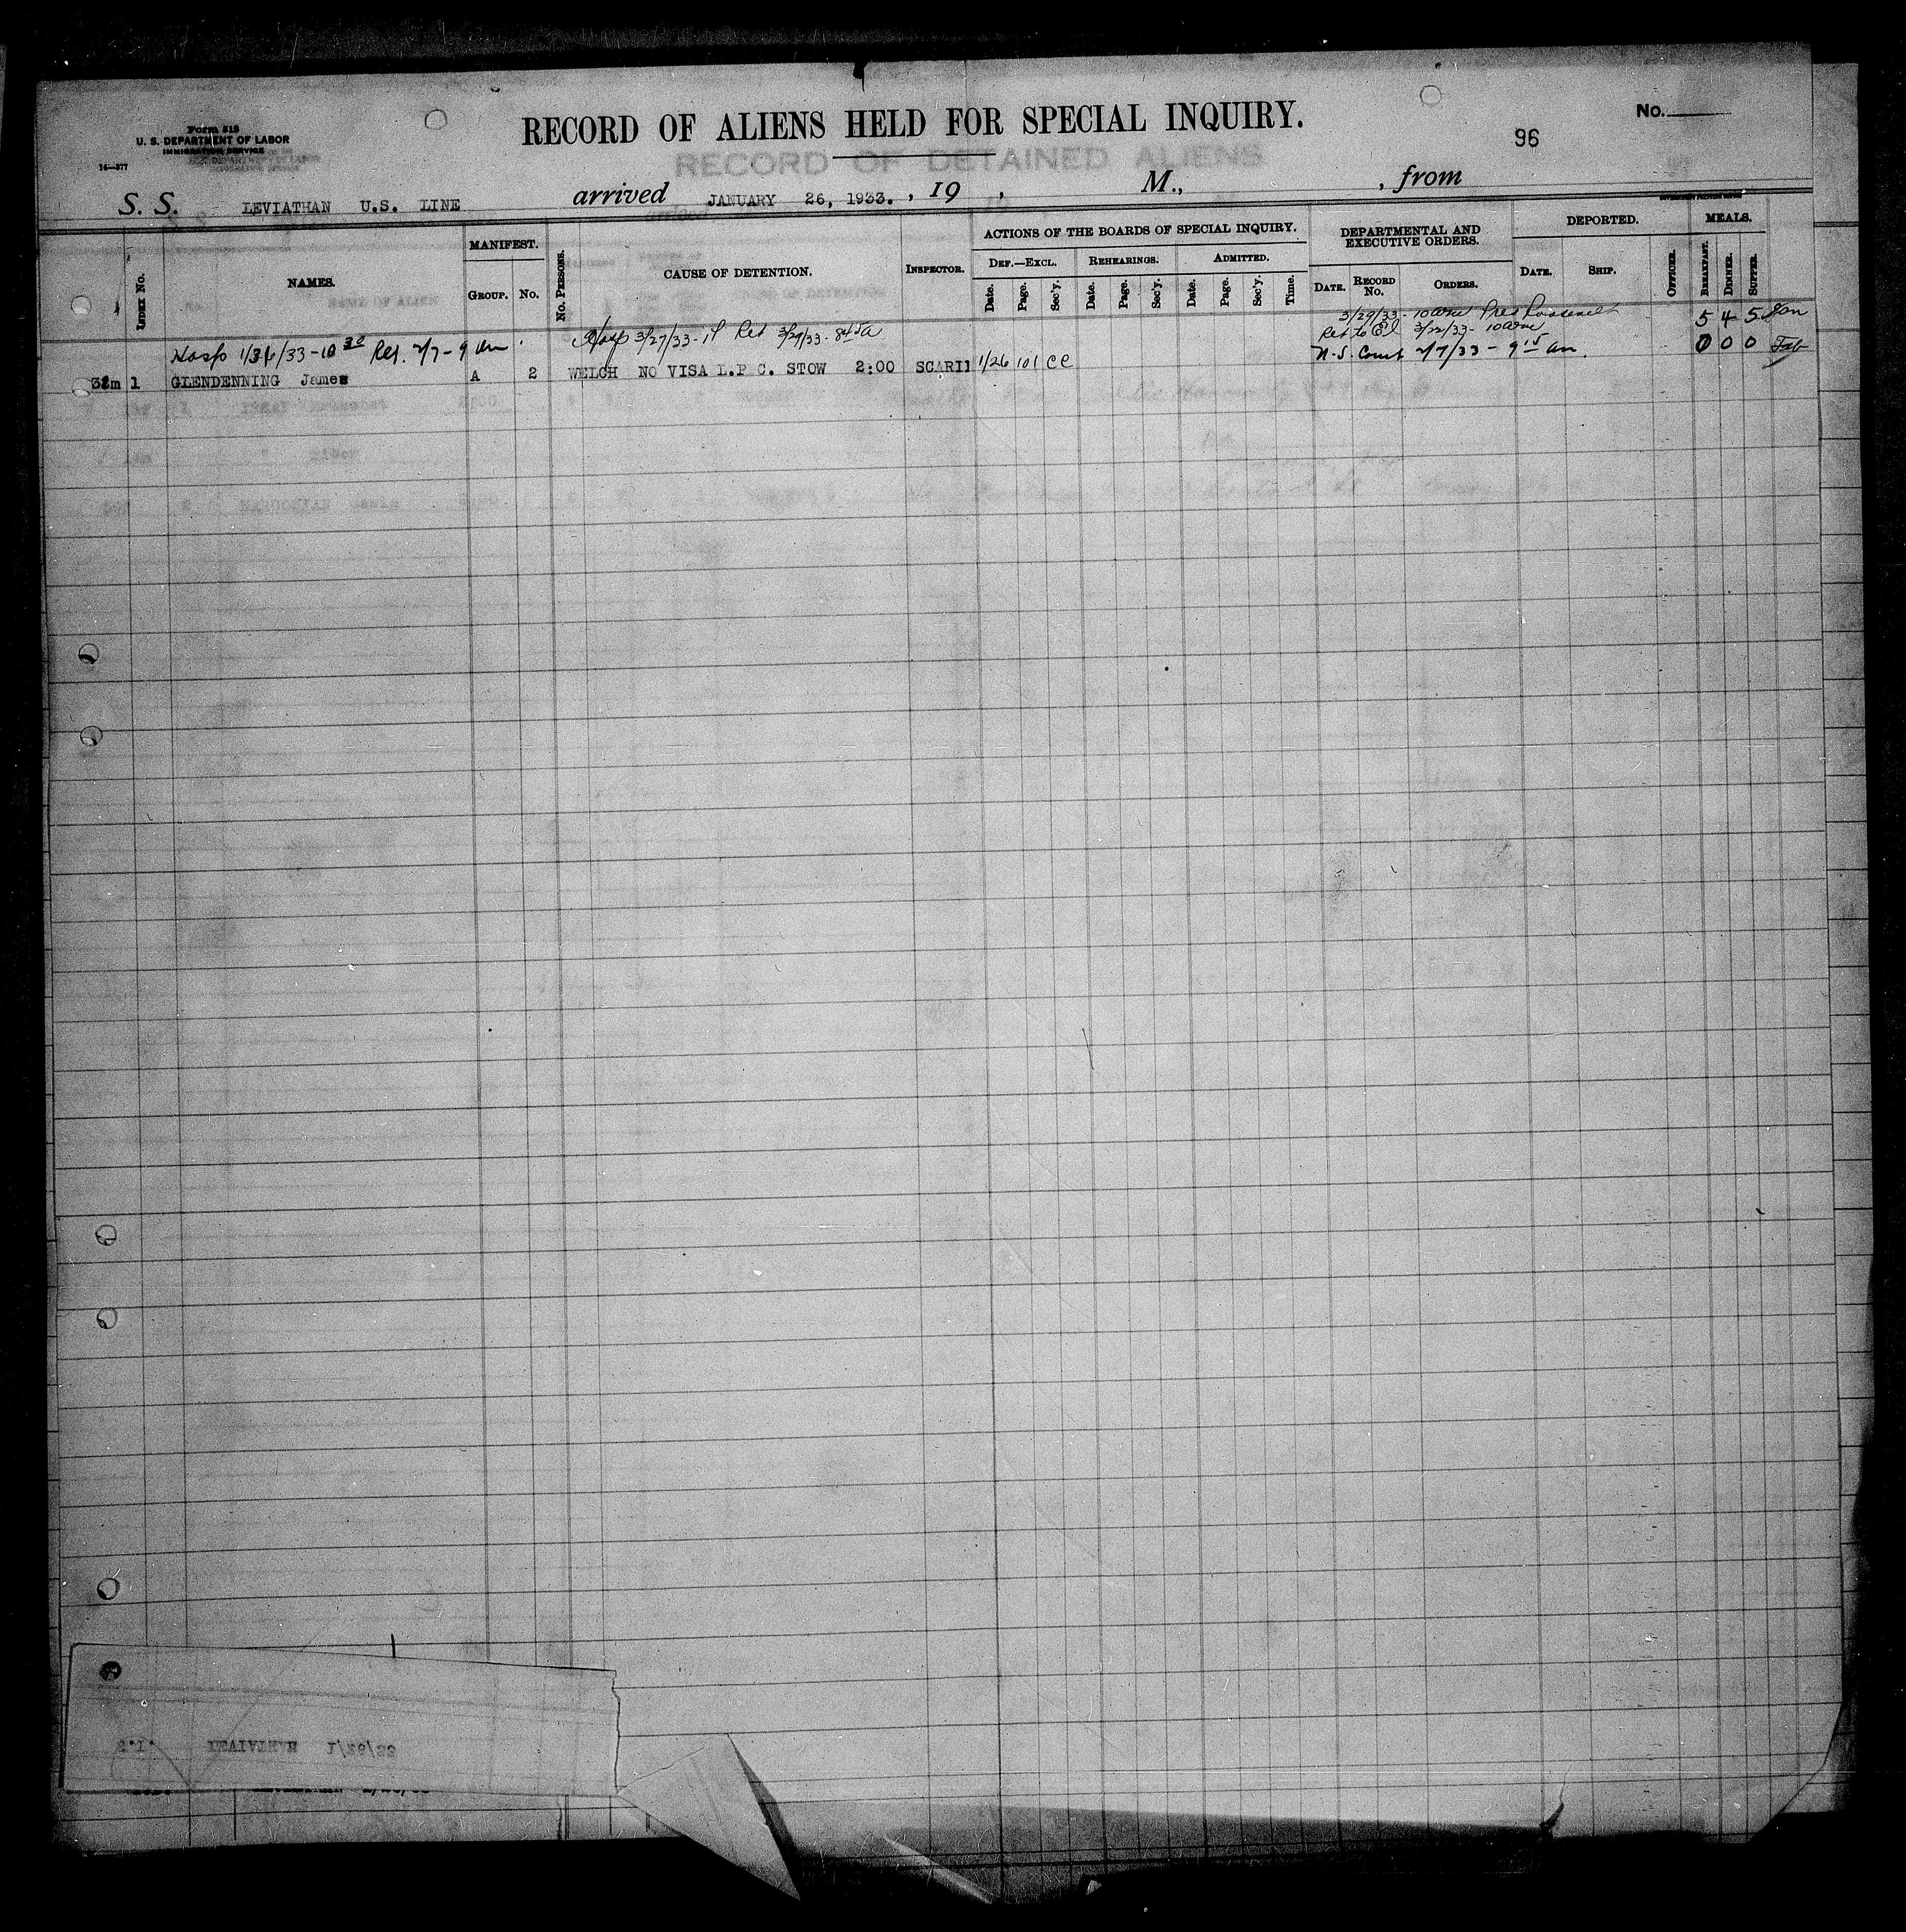 Form 518
U. S. DEPARTMENT OF LABOR
IMMIGRATION SERVICE
14—377
RECORD OF ALIENS HELD FOR SPECIAL INQUIRY.
No.
96
RECORD OF DETAINED ALIENS
S. S. LEVIATHAN U.S. LINE arrived JANUARY 26, 1933. , 19 , M., , from
INDEX No.
NAMES.
MANIFEST.
GROUP. No.
No. PERSONS.
CAUSE OF DETENTION.
INSPECTOR.
ACTIONS OF THE BOARDS OF SPECIAL INQUIRY.
DEF.—EXCL. REHEARINGS. ADMITTED.
Date. Page. Sec'y. Date. Page. Sec'y. Date. Page. Sec'y. Time.
DEPARTMENTAL AND EXECUTIVE ORDERS.
DATE. RECORD No. ORDERS.
DEPORTED.
DATE. SHIP. OFFICER.
MEALS.
BREAKFAST. DINNER. SUPPER.
3/29/33 - 10 am Pres Roosevelt 5 4 5 Jan
Hosp 3/27/33 - 1P Ret 3/29/33 - Ret to EI 3/22/33 - 10 am
Hosp 1/26/33 - 10 30 Ret. 2/7 - 9 am N.S. Court 2/7/33 - 9 15 am. 0 0 0 Feb
32m 1 GLENDENNING James A 2 WELCH NO VISA L.P C. STOW 2:00 SCARI 1/26 101 CC
NAME OF ALIEN
S.I. LEAIVIHAN 1/26/33